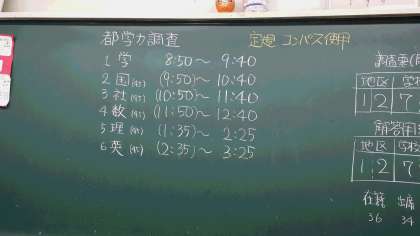 都学力調査 定規 コンパス使用
1 学 8:50〜 9:40
2 国(45) (9:50)〜 10:40
3 社(45) (10:50)〜 11:40
4 数(45) (11:50)〜 12:40
5 理(45) (1:35)〜 2:25
6 英(45) (2:35)〜 3:25
調査票(
地区 学校
1 2 7
解答用
地区 学校
1 2 7
在籍 出席
36 34